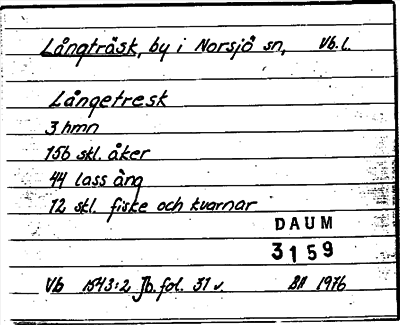 Långträsk, by i Norsjö sn, Vb. l.
Långetresk
3 hmn
15b skl. åker
44 lass äng
12 skl. fiske och kvarnar
DAUM
3159
Vb 1543:2 Jb. fol. 31 v. BA 1976